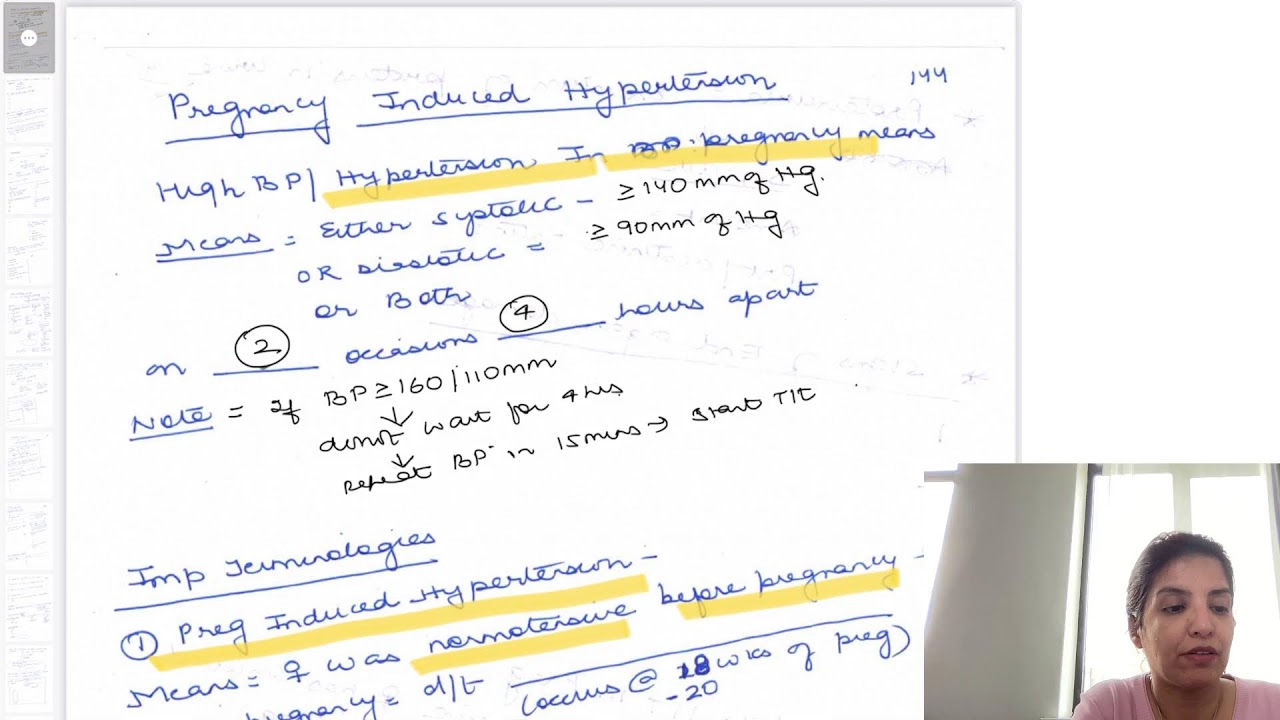 144
Pregnancy Induced Hypertension
High BP/ Hypertension In pregnancy means
Means = Either systolic - ≥140 mm of Hg.
OR diastolic = ≥90mm of Hg
or Both
on 2 occasions 4 hours apart
Note = If BP ≥160/110mm
↓
donot wait for 4hrs
↓
repeat BP in 15mins → start T/t
Imp Terminologies
① Preg Induced Hypertension -
Means = ♀ was normotensive before pregnancy -
pregnancy = d/t
(occurs @ 18 wks of preg)
-20